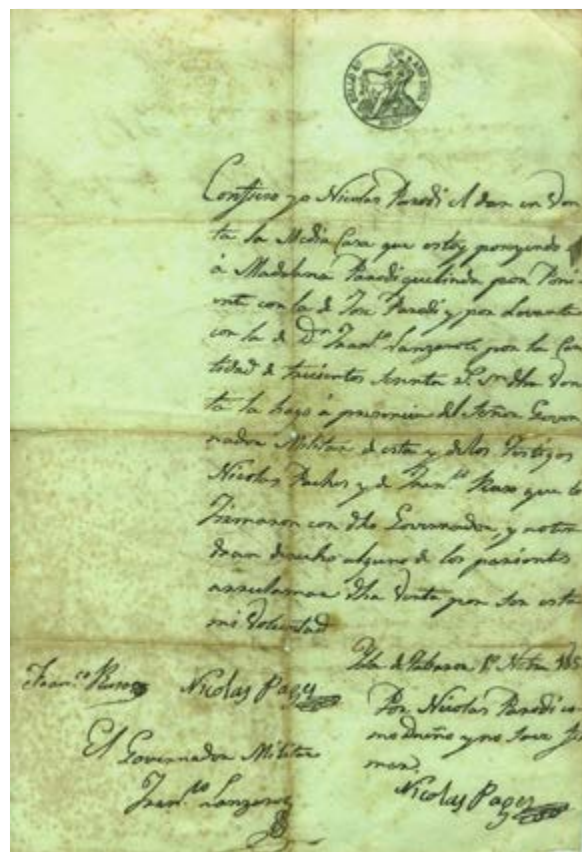 Confieso yo Nicolas Parodi el dar en Ven
ta la Media Casa que estoy poseyendo
á Madalena Parodi que linda por Poni
ente con la de José Parodi y por Levante
con la de Dn Franco Lanzarote por la Can
tidad de trecientos Senta dha Ven
ta la hago á presencia del Señor Gover
nador Militar de esta y de los Testigos
Nicolas y de Franco Ruso que lo
Firmaron con dho Governador, y no ten
dran derecho alguno de los parientes
arreclamar dha Venta por ser esta
mi Voluntad
Isla de Tabarca
Franco Ruso Nicolas Pages
Por Nicolas Parodi co
mo dueño y no saver fir
mar.
Nicolas Pages
El Governador Militar
Franco Lanzarote